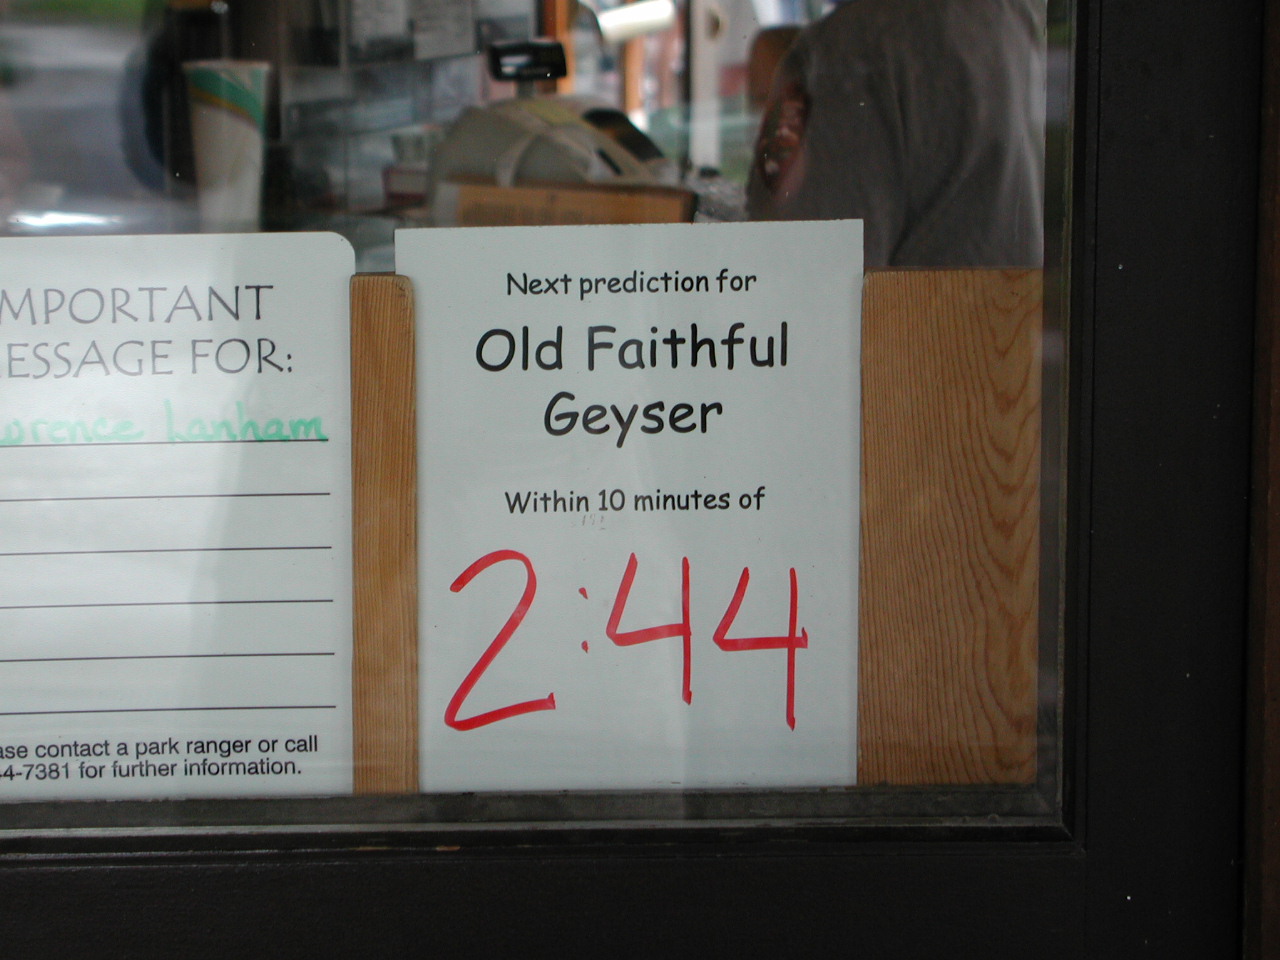 MPORTANT
ESSAGE FOR:
orence Lanham
ase contact a park ranger or call
4-7381 for further information.
Next prediction for
Old Faithful
Geyser
Within 10 minutes of
2:44